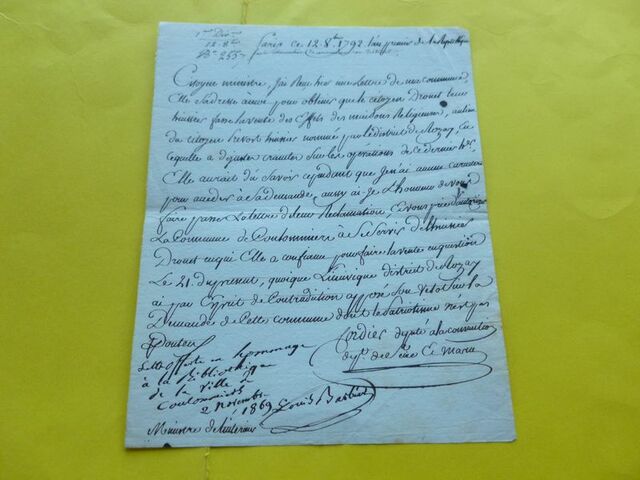 1ere Don
12. 8bre
Bu 255
Paris ce 12 8bre 1792. l'an premier de la Republique
Citoyen ministre, J'ai Reçu hier une Lettre de ma commune
Elle s'adresse a moi pour obtenir que le citoyen Drouet
huissier fasse la vente des Effets des maisons Religieuses, au lieu
du citoyen Prevost huissier nommé par le district de Rozay, ce
a crainter sur les operations de ce dernier
Elle auroit dû Savoir cependant que Je n'ai aucun caractere
pour acceder a Sa demande, aussi ai-je L'honneur de vous
faire passer La lettre de Leur Reclamation, Et vous prie d'autoriser
La Commune de Coulommiers à se Servir de L'huissier
Drouet en qui Elle a confiance pour faire la vente en question
Le 21. du present, quoique Le district de Rozay
ai par Esprit de Contradiction apposé Son Veto Sur la
Demande de Cette commune dont le Patriotisme n'est pas
Douteux
Cordier deputé a la convention
dept. de Seine Et Marne
Lettre offerte en hommage
à la Bibliothèque
de la ville de
Coulommiers
2 Novembre
1869 Louis Barbier
Ministre de l'interieur